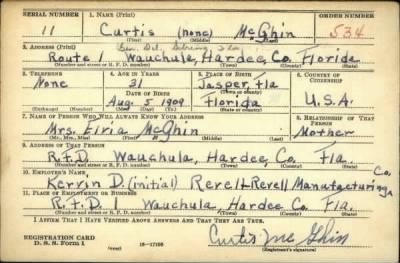 SERIAL NUMBER 1. NAME (Print) ORDER NUMBER
11 Curtis (none) McGhin 534
(First) (Middle) (Last)
2. ADDRESS (Print) Gen. Del. Sebring Fla
Route 1 Wauchula, Hardee, Co. Florida
(Number and street or R. F. D. number) (Town) (County) (State)
3. TELEPHONE 4. AGE IN YEARS 5. PLACE OF BIRTH 6. COUNTRY OF CITIZENSHIP
None 31 Jasper, Fla
DATE OF BIRTH (Town or county)
Aug. 5 1909 Florida U.S.A.
(Exchange) (Number) (Mo.) (Day) (Yr.) (State or country)
7. NAME OF PERSON WHO WILL ALWAYS KNOW YOUR ADDRESS 8. RELATIONSHIP OF THAT PERSON
Mrs. Elvia McGhin Mother
(Mr., Mrs., Miss) (First) (Middle) (Last)
9. ADDRESS OF THAT PERSON
R.F.D. Wauchula, Hardee, Co. Fla.
(Number and street or R. F. D. number) (Town) (County) (State)
10. EMPLOYER'S NAME Co.
Kervin D. (initial) Revell + Revell Manufacturing
11. PLACE OF EMPLOYMENT OR BUSINESS
R.F.D. 1 Wauchula, Hardee Co. Fla.
(Number and street or R. F. D. number) (Town) (County) (State)
I AFFIRM THAT I HAVE VERIFIED ABOVE ANSWERS AND THAT THEY ARE TRUE.
REGISTRATION CARD
D. S. S. Form 1 16-17105 Curtis McGhin
(Registrant's signature)